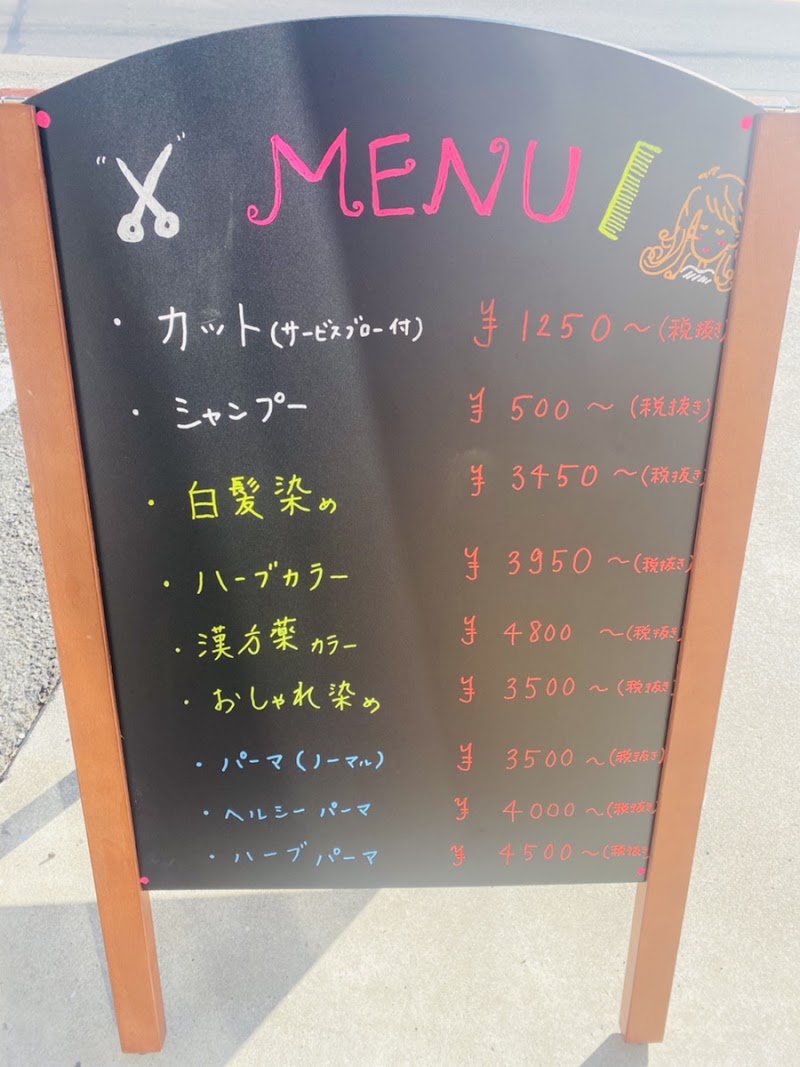 MENU
・カット(サービスブロー付) ¥1250〜(税抜き
・シャンプー ¥500〜(税抜き)
・白髪染め ¥3450〜(税抜き)
・ハーブカラー ¥3950〜(税抜き)
・漢方薬カラー ¥4800〜(税抜き)
・おしゃれ染め ¥3500〜(税抜き)
・パーマ(ノーマル) ¥3500〜(税抜き)
・ヘルシーパーマ ¥4000〜(税抜き)
・ハーブパーマ ¥4500〜(税抜き)